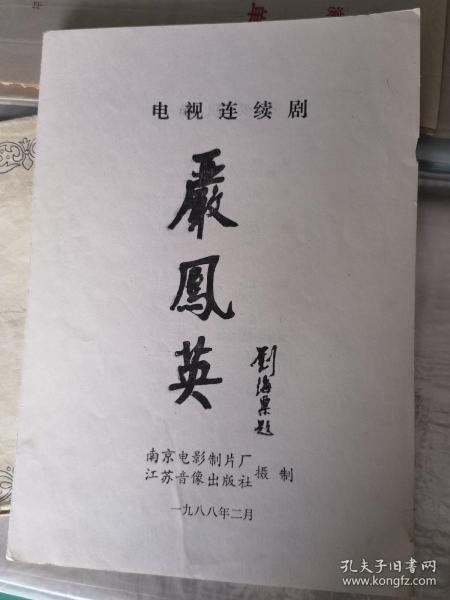 电视连续剧
嚴鳳英
劉海粟题
南京电影制片厂
江苏音像出版社
摄制
一九八八年二月
孔夫子旧书网
www.kongfz.com